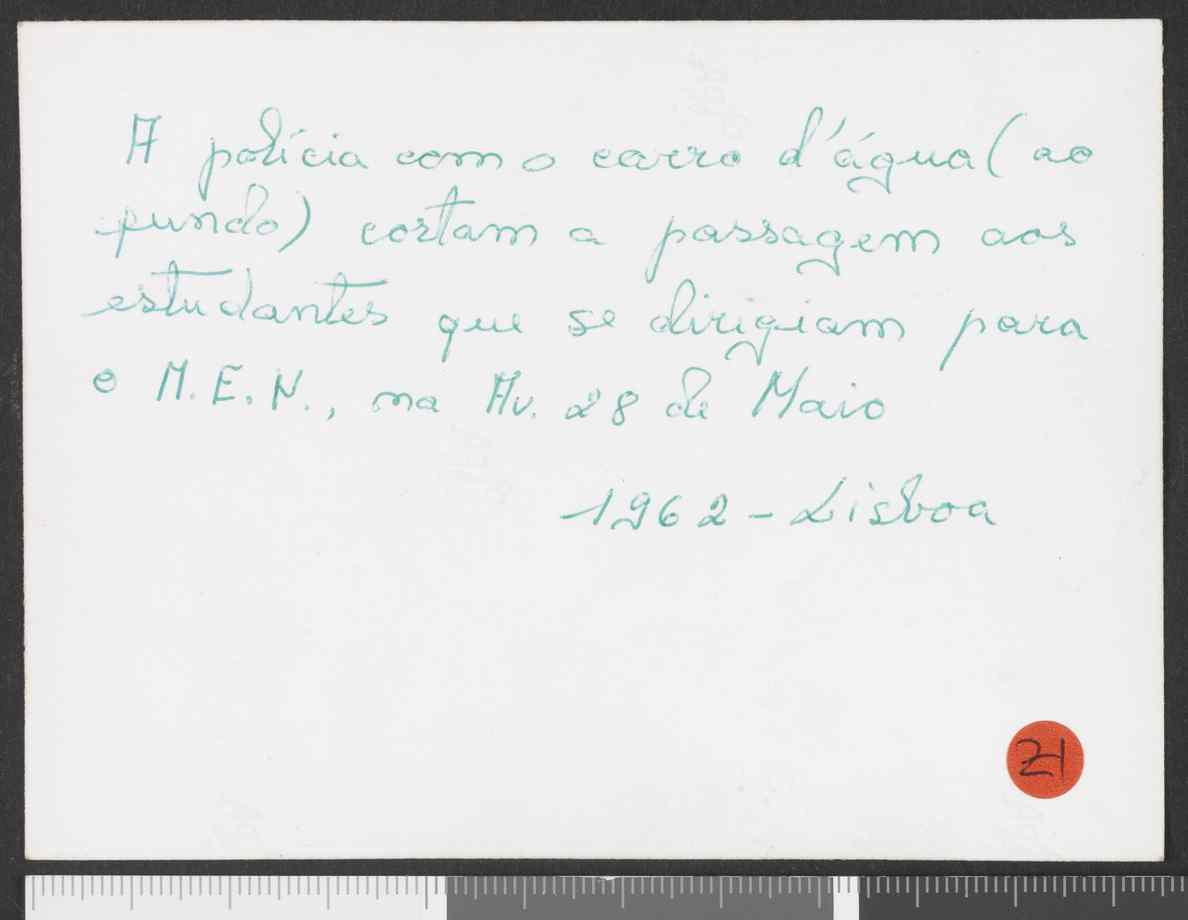 A polícia com o carro d'água (ao
fundo) cortam a passagem aos
estudantes que se dirigiam para
o M.E.N., na Av. 28 de Maio
1962 - Lisboa
21